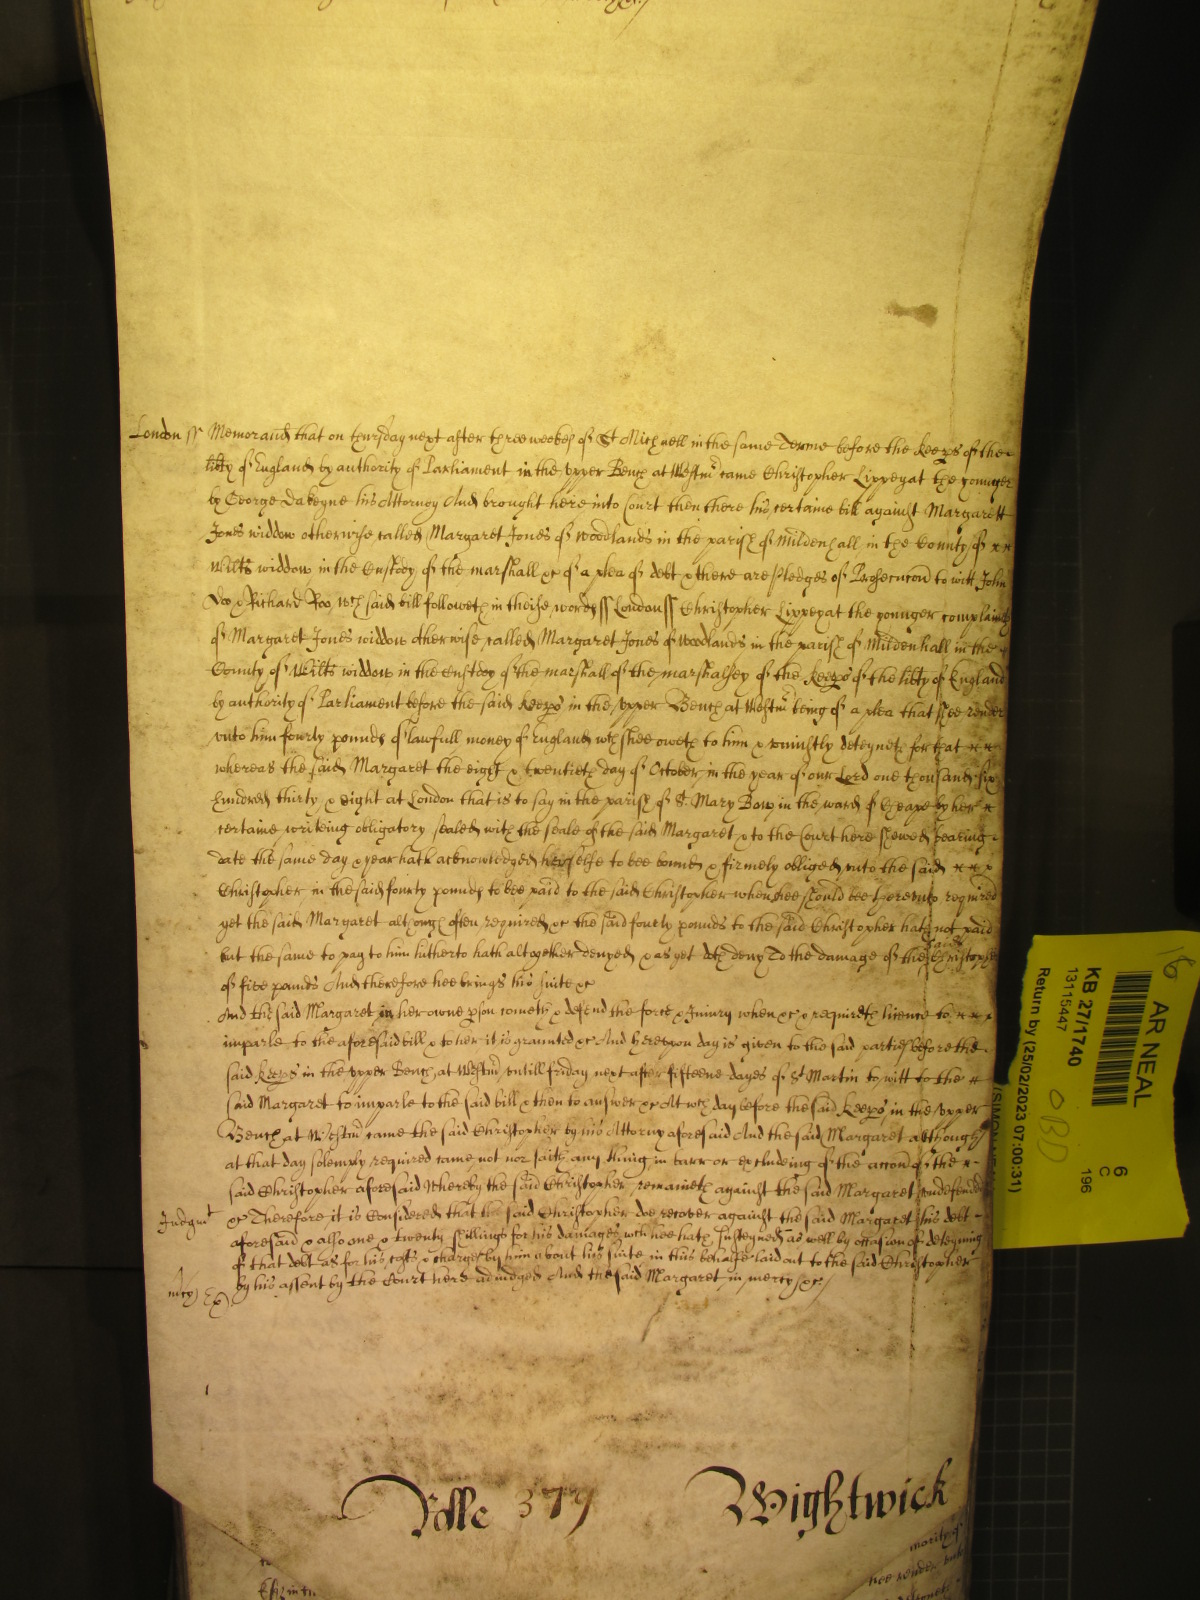 London ss Memorand that on thursday next after three weekes of St Michaell in the same Terme before the Keeps of the
libty of England by authority of Parliament in the vpper Bench at Westmr came Christopher Lippeyat the younger
by George Dakeyne his Attorney And brought here into Court then there his certaine bill against Margarett
Jones widdow otherwise called Margaret Jones of Woodlands in the parish of Mildenhall in the County of x x
Wilts widdow in the Custody of the marshall &c of a plea of debt & there are pledges of Prosecucon to witt John
Doo & Richard Roo, wch said bill followeth in theise words ss London ss Christopher Lippeyat the younger complaineth
of Margaret Jones widdow otherwise called Margaret Jones of Woodlands in the parish of Mildenhall in the
County of Wilts widdow in the Custody of the marshall of the marshalsey of the Keeps of the libty of England
by authority of Parliament before the said Keeps in the vpper Bench at Westmr being of a plea that shee render
vnto him fourty pounds of lawfull money of England wch shee oweth to him & vniustly deteyneth for that x x
whereas the said Margaret the eight & twentieth day of October in the year of our Lord one thousand six
hundred thirty & eight at London that is to say in the parish of St. Mary Bow in the ward of Cheape by her x
certaine writeing obligatory sealed with the seale of the said Margaret & to the Court here shewed beareing
date the same day & year hath acknowledged herselfe to bee bound & firmely obliged vnto the said x x x
Christopher in the said fourty pounds to bee paid to the said Christopher when hee should bee therevnto required
yet the said Margaret although often required &c the said fourty pounds to the said Christopher hath not paid
but the same to pay to him hitherto hath altogether denyed & as yet doth deny To the damage of the said Christopher
of five pounds And therefore hee brings his suite &c
And the said Margaret in her owne pson cometh & defend the force & Iniury when &c & requireth licence to x x x
imparle to the aforesaid bill & to her it is graunted &c And herevpon day is given to the said parties before the
said Keeps in the vpper Bench at Westmr vntill friday next after fifteene dayes of St Martin to witt to the x
said Margaret to imparle to the said bill & then to answer &c At wch day before the said Keeps in the vpper
Bench at Westmr came the said Christopher by his Attorny aforesaid And the said Margaret although
at that day solemply required came not nor saith any thing in barr or excludeing of the accon of the x
said Christopher aforesaid Whereby the said Christopher remaineth against the said Margaret vndefended
Judgmt &c Therefore it is Considered that the said Christopher doe recover against the said Margaret his debt
aforesaid & also one & twenty shillings for his damages wch hee hath susteyned as well by occasion of deteyning
of that debt as for his costs & charges by him about his suite in this behalfe laid out to the said Christopher
mcy Ex by his assent by the Court here adiudged And the said Margaret in mercy &c
Rolle 379 Wightwick
18
AR NEAL
KB 27/1740
13115447
Return by (25/02/2023 07:00:31)
OBD
6
C
196